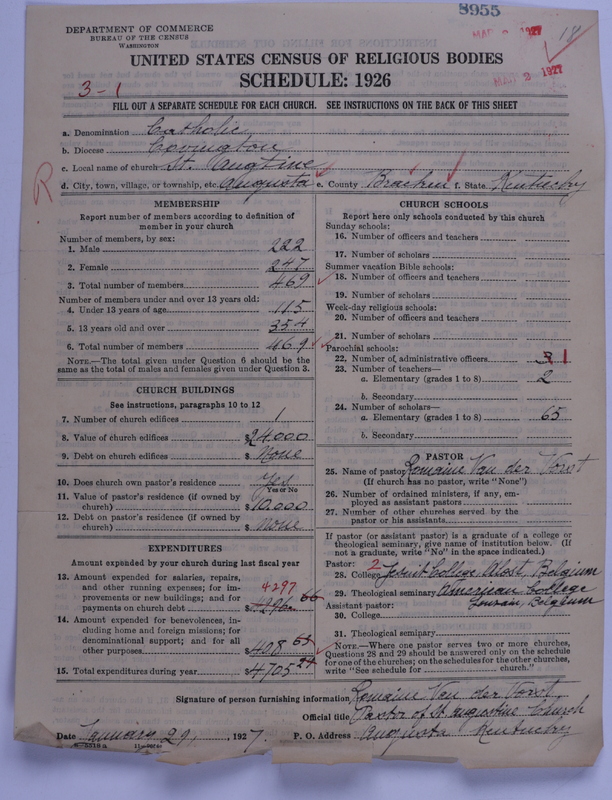 8955
DEPARTMENT OF COMMERCE
BUREAU OF THE CENSUS
WASHINGTON
MAR 2 1927
18
MAR 2 1927
UNITED STATES CENSUS OF RELIGIOUS BODIES
SCHEDULE: 1926
3-1
FILL OUT A SEPARATE SCHEDULE FOR EACH CHURCH. SEE INSTRUCTIONS ON THE BACK OF THIS SHEET
a. Denomination Catholic
b. Diocese Covington
c. Local name of church St. Augtine
R
d. City, town, village, or township, etc. Augusta e. County Bracken f. State Kentucky
MEMBERSHIP
Report number of members according to definition of
member in your church
Number of members, by sex:
1. Male 222
2. Female 247
3. Total number of members 469
Number of members under and over 13 years old:
4. Under 13 years of age 115
5. 13 years old and over 354
6. Total number of members 469
NOTE.—The total given under Question 6 should be
same as the total of males and females given under Question 3.
CHURCH BUILDINGS
See instructions, paragraphs 10 to 12
7. Number of church edifices 1
8. Value of church edifices $24000
9. Debt on church edifices $ None
10. Does church own pastor's residence Yes
Yes or No
11. Value of pastor's residence (if owned by
church) $10.000
12. Debt on pastor's residence (if owned by
church) $ None
EXPENDITURES
Amount expended by your church during last fiscal year
13. Amount expended for salaries, repairs,
and other running expenses; for im-
provements or new buildings; and for
payments on church debt $ 4297
14. Amount expended for benevolences, in-
cluding home and foreign missions; for
denominational support; and for all
other purposes $ 408
15. Total expenditures during year $4705
CHURCH SCHOOLS
Report here only schools conducted by this church
Sunday schools:
16. Number of officers and teachers
17. Number of scholars
Summer vacation Bible schools:
18. Number of officers and teachers
19. Number of scholars
Week-day religious schools:
20. Number of officers and teachers
21. Number of scholars
Parochial schools:
22. Number of administrative officers 3 1
23. Number of teachers—
a. Elementary (grades 1 to 8) 2
b. Secondary
24. Number of scholars—
a. Elementary (grades 1 to 8) 65
b. Secondary
PASTOR
25. Name of pastor Romaine Van der Vorst
(If church has no pastor, write "None")
26. Number of ordained ministers, if any, em-
ployed as assistant pastors
27. Number of other churches served by the
pastor or his assistants
If pastor (or assistant pastor) is a graduate of a college or
theological seminary, give name of institution below. (If
not a graduate, write "No" in the space indicated.)
Pastor: 2
28. College Jesuit College, Alost, Belgium
29. Theological seminary American College
Assistant pastor: Louvain, Belgium
30. College
31. Theological seminary
NOTE.—Where one pastor serves two or more churches,
Questions 28 and 29 should be answered only on the schedule
for one of the churches; on the schedules for the other churches,
write "See schedule for church."
Signature of person furnishing information Romaine Van der Vorst,
Official title Pastor of St Augustine Church
Date January 29, 1927. P. O. Address Augusta Kentucky